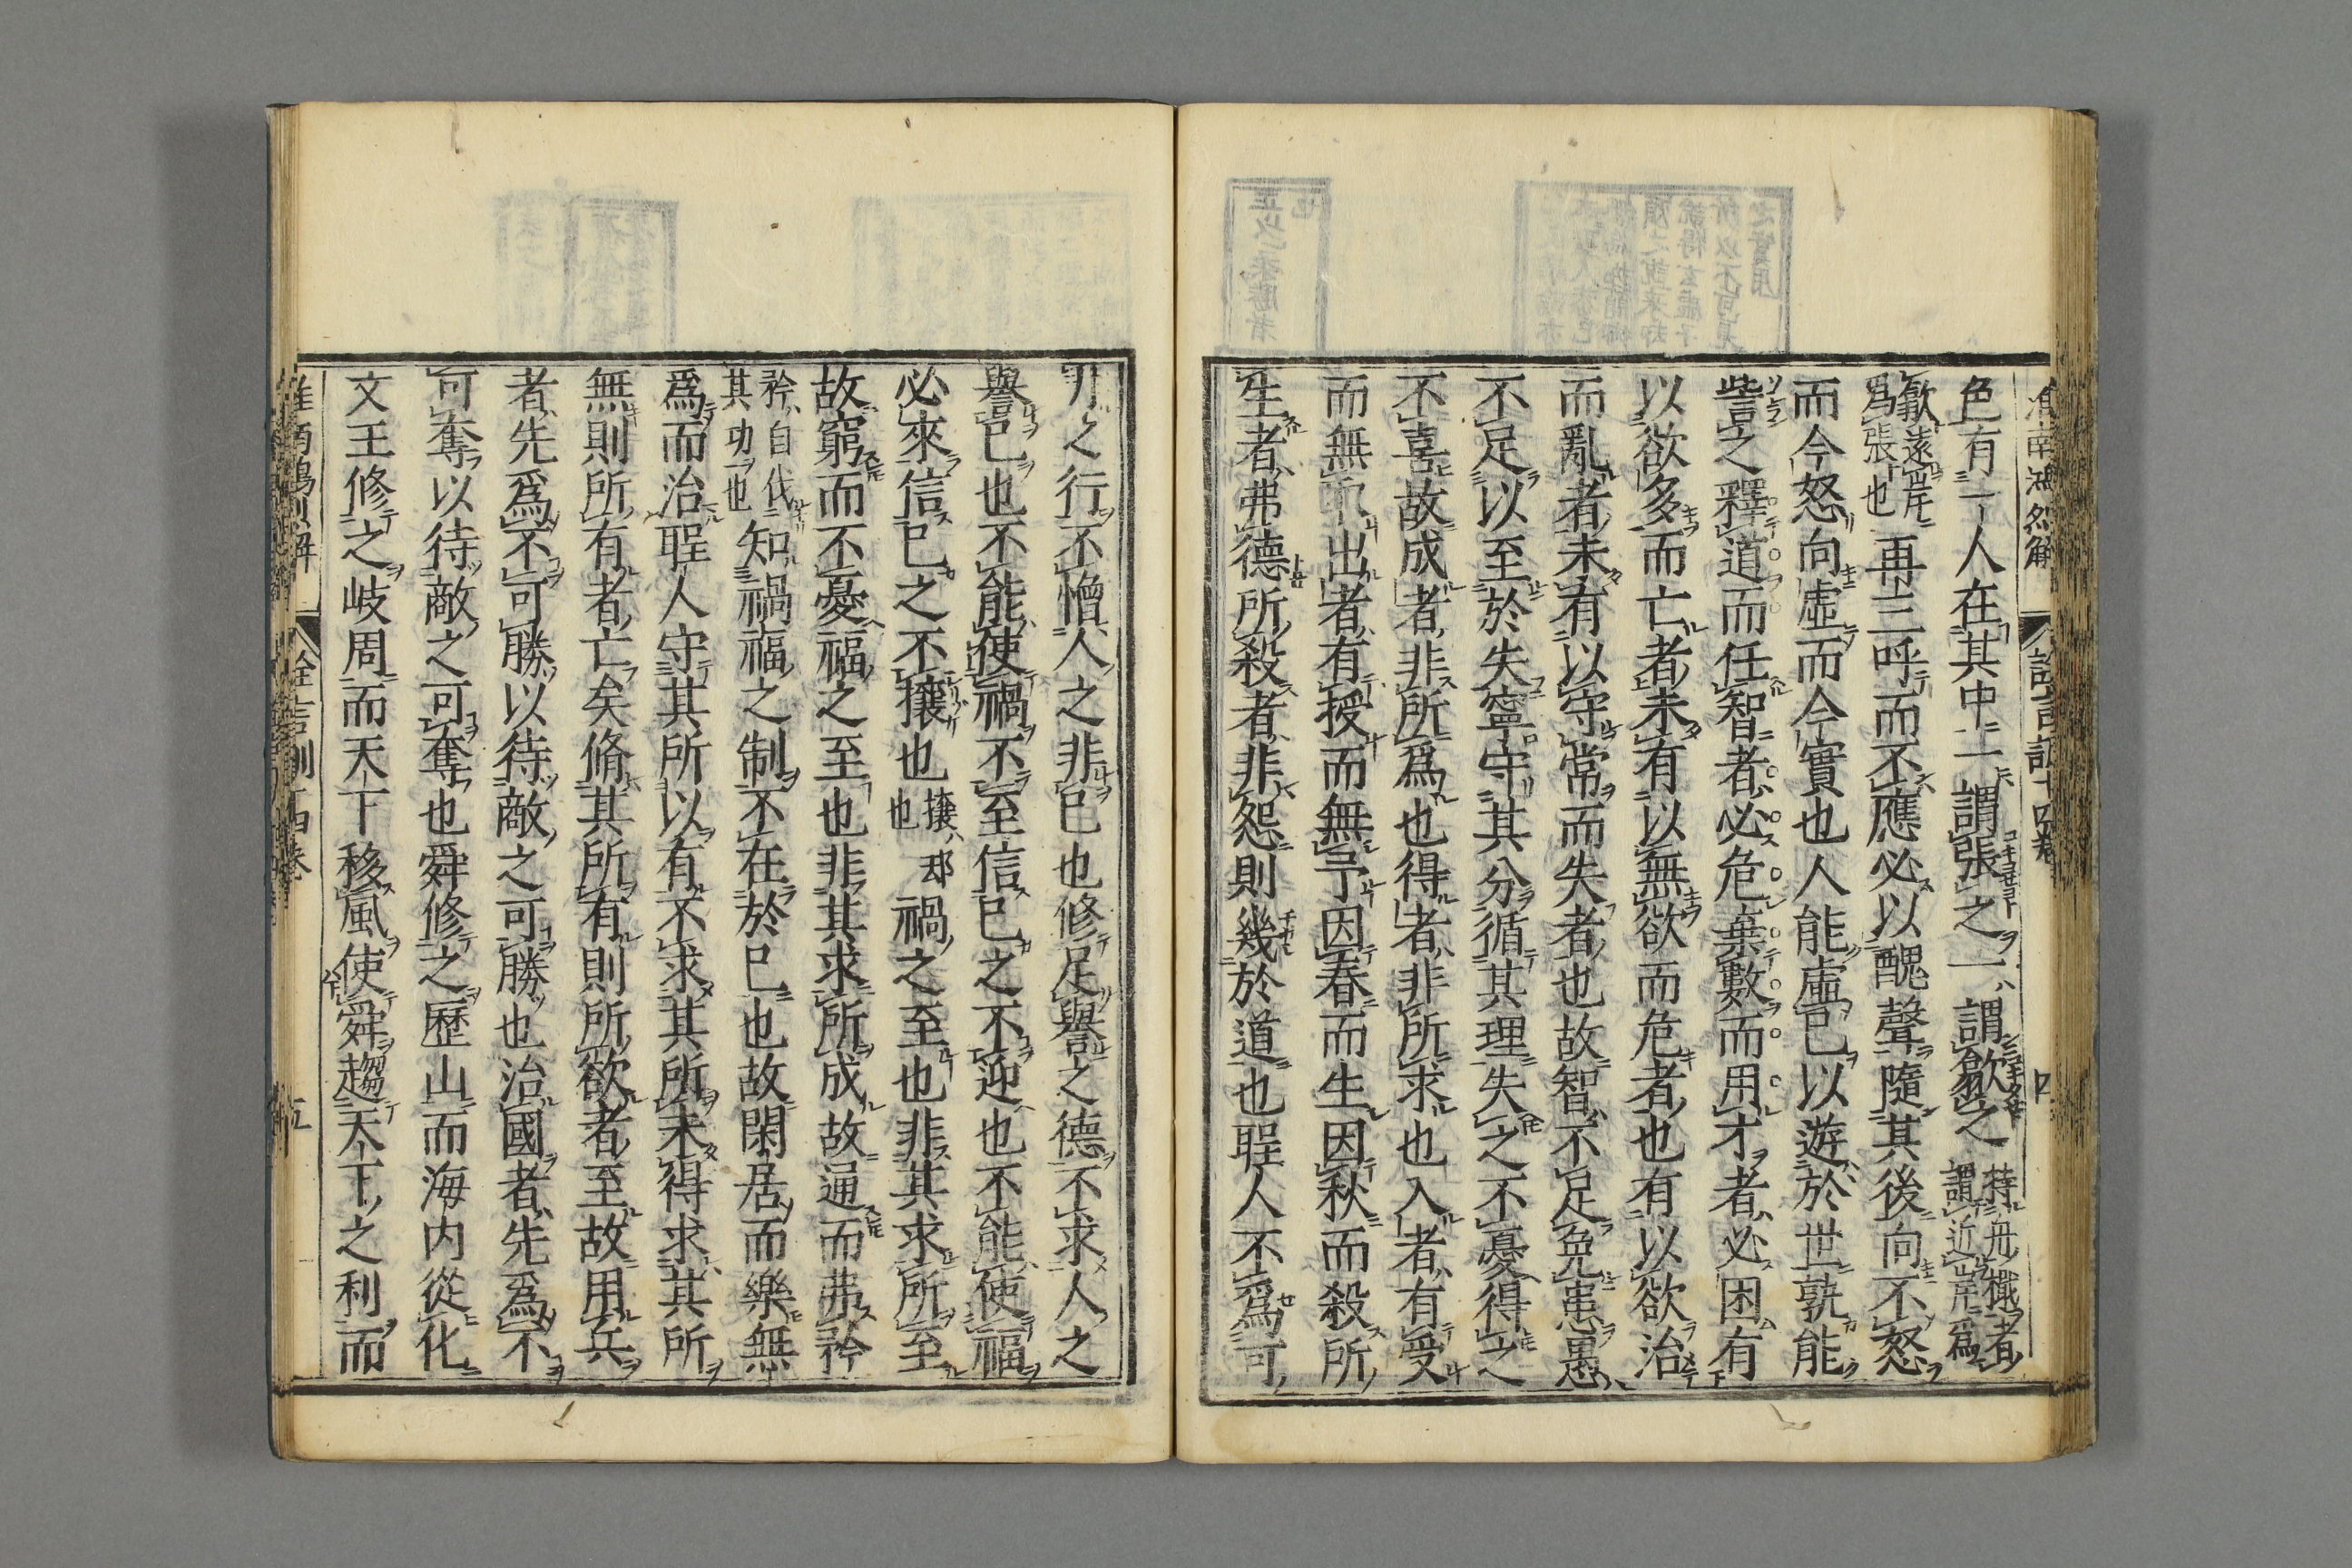 淮南鴻烈解 詮言訓十四卷 四
色有一人在其中一謂張之一謂歙之持舟檝者謂近岸爲
歙遠岸爲張也再三呼而不應必以醜聲隨其後向不怒
而今怒向虛而今實也人能虛己以遊於世孰能
訾之釋道而任智者必危棄數而用才者必困有
以欲多而亡者未有以無欲而危者也有以欲治
而亂者未有以守常而失者也故智不足免患愚
不足以至於失寧守其分循其理失之不憂得之
不喜故成者非所爲也得者非所求也入者有受
而無取出者有授而無予因春而生因秋而殺所
生者弗德所殺者非怨則幾於道也聖人不爲可
非之行不憎人之非己也修足譽之德不求人之
譽己也不能使禍不至信己之不迎也不能使福
必來信己之不攘也攘却也禍之至也非其求所至
故窮而不憂福之至也非其求所成故通而弗矜
矜自伐其功也知禍福之制不在於己也故閑居而樂無
爲而治聖人守其所以有不求其所未得求其所
無則所有者亡矣脩其所有則所欲者至故用兵
者先爲不可勝以待敵之可勝也治國者先爲不
可奪以待敵之可奪也舜修之歷山而海内從化
文王修之岐周而天下移風使舜趨天下之利而
淮南鴻烈解 詮言訓十四卷 五